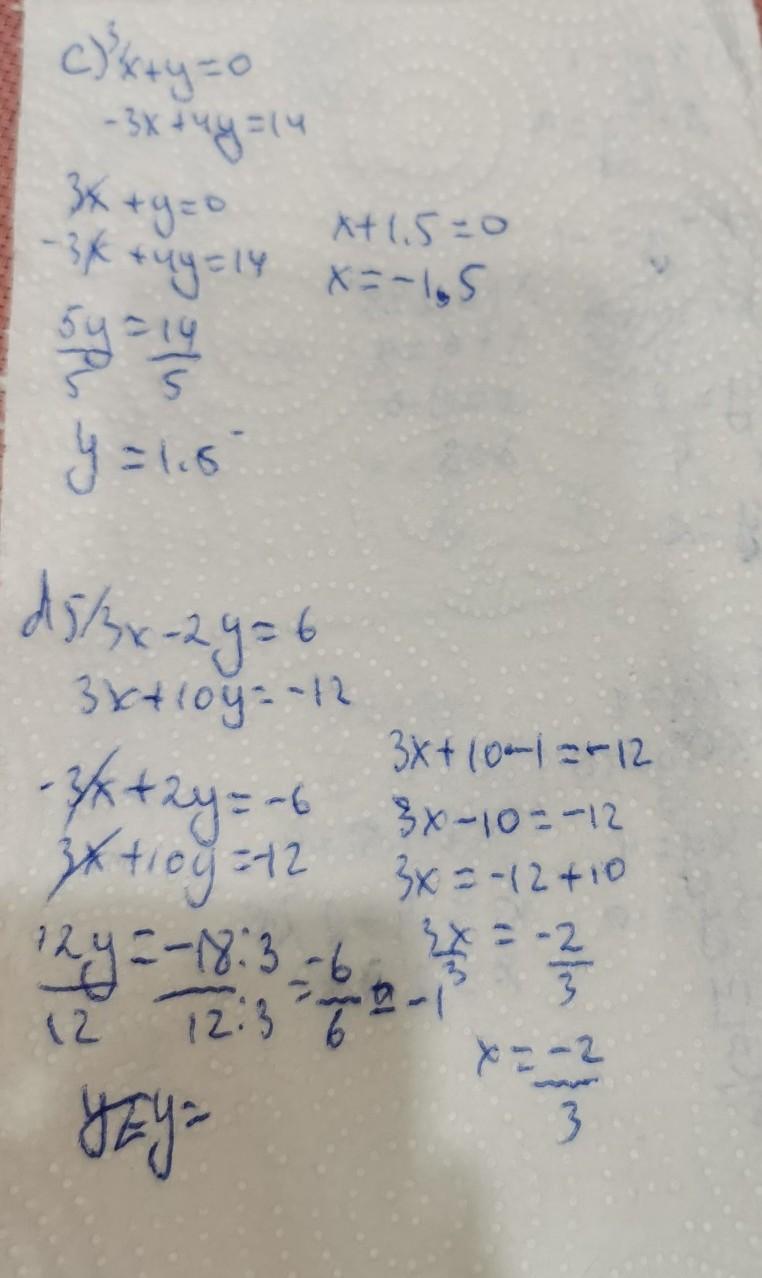 c) 3/x+y=0
-3x+4y=14
3x+y=0
-3x+4y=14
5y/5 = 14/5
y=1.5
x+1.5=0
x=-1.5
d) 5/3x-2y=6
3x+10y=-12
-3x+2y=-6
3x+10y=-12
12y/12 = -18:3/12:3 = -6/6 = -1
y= y=
3x+10-1=-12
3x-10=-12
3x=-12+10
3x/3 = -2/3
x = -2/3